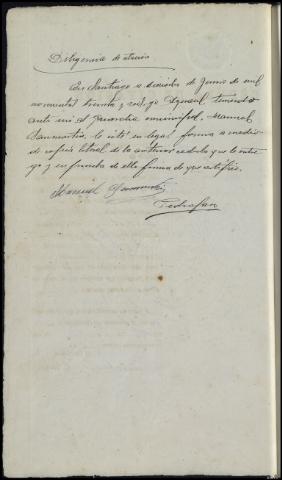 Diligencia de citación
En Santiago a dieciséis de Junio de mil
novecientos treinta y seis, yo Agente, teniendo
ante mi al Guardia municipal, Manuel
Sanmartín, le cité en legal forma a medio
de copia literal de la anterior cédula que le entre
go y en prueba de ello firma de que certifico.
Manuel Sanmartín